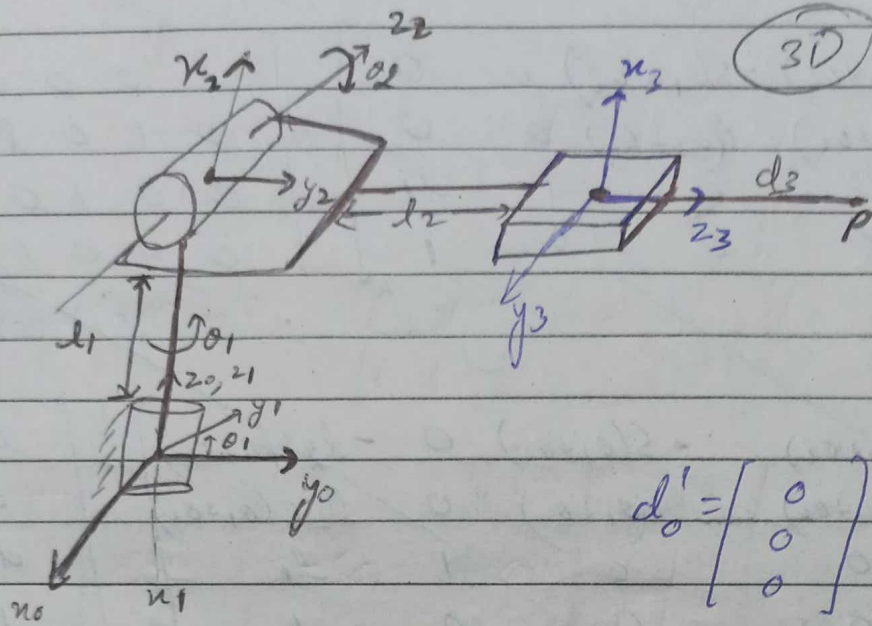 3D
z2
θ2
x2
x3
y2
l2
d3
z3
P
y3
l1
θ1
z0, z1
y1
θ1
y0
x0
x1
d0^1 = [0
0
0]